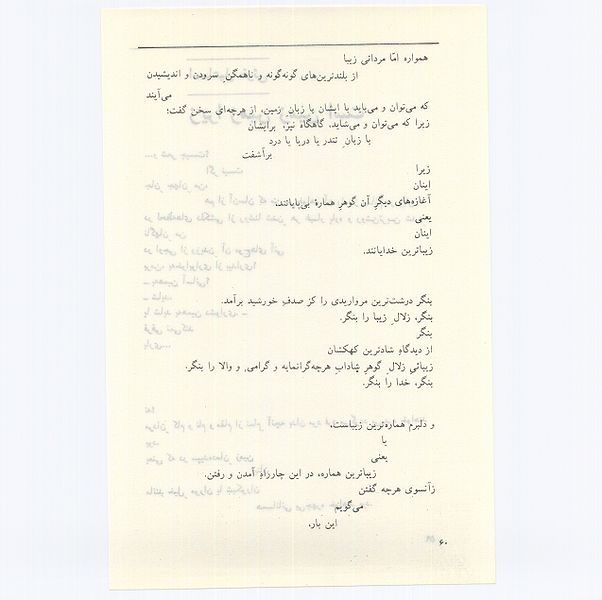 همواره امّا مردانی زیبا
از بلندترین‌های گونه‌گونه و باهمگنِ سرودن و اندیشیدن
می‌آیند
که می‌توان و می‌باید با ایشان یا زبانِ زمین، از هرچه‌ای سخن گفت؛
زیرا که می‌توان و می‌شاید، گاهگاه نیز، برایشان
یا زبانِ تندر یا دریا یا درد
برآشفت
زیرا
اینان
آغازه‌های دیگرِ آن گوهرِ همارهٔ بی‌پایانند،
یعنی
اینان
زیباترین خدایانند.
بنگر درشت‌ترین مرواریدی را کز صدفِ خورشید برآمد.
بنگر، زلالِ زیبا را بنگر.
بنگر
از دیدگاهِ شادترین کهکشان
زیبائیِ زلالِ گوهرِ شادابِ هرچه‌گرانمایه و گرامی، و والا را بنگر.
بنگر، خدا را بنگر.
و دلبرم هماره‌ترین زیباست،
یا
یعنی
زیباترین هماره، در این چارراهِ آمدن و رفتن.
زآنسویِ هرچه گفتن
می‌گویم
این بار،
۶۰